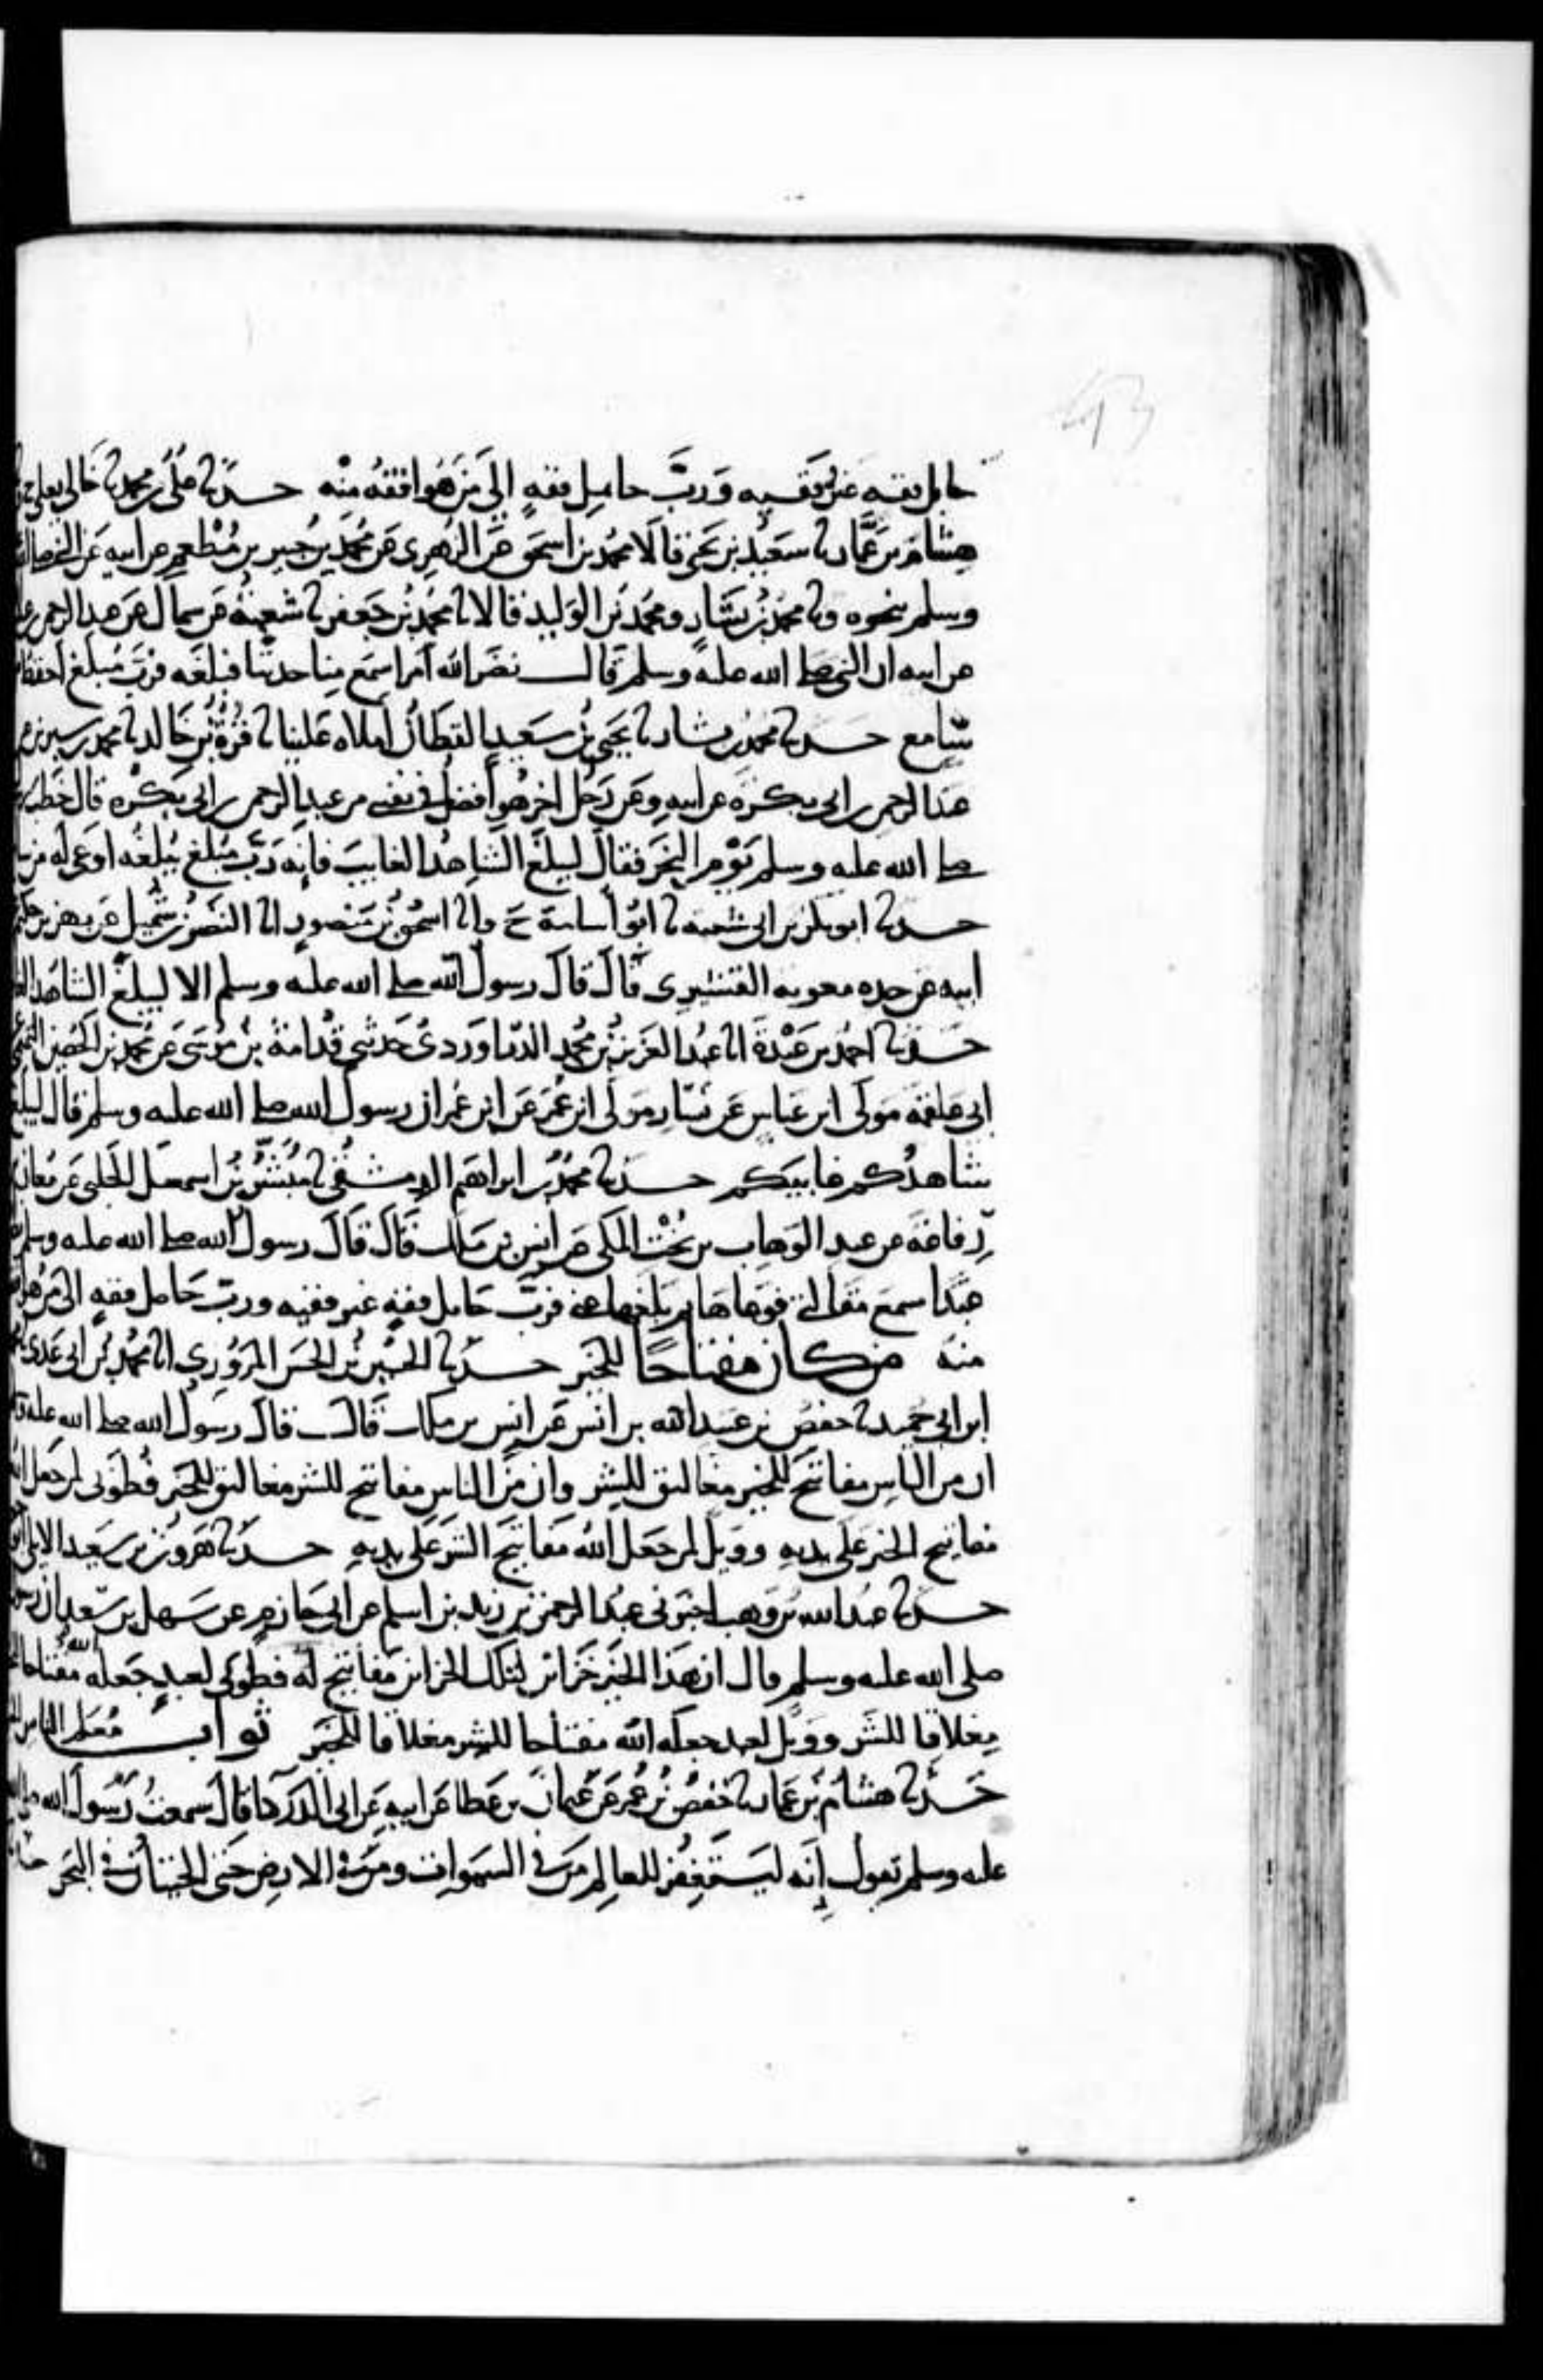 حامل فقه غير فقيه وَرُبَّ حامِل فقهٍ إلَى مَن هُوَ افقهُ مِنْه حدثنا علي بن محمد نا خالي يعلى ح
هِشَام بن عمَّار نا سَعيد بن يحيى قالَا نا محمد بن اسحق عن الزهري عن محمد بن جبير بن مُطْعِم عن ابيه عَن النبي صلى
وسلم بنحوه ونا محمد بن بشار ومحمد بن الوَليد قالا نا محمد بن جعفر نا شعبةُ عن سماك عن عبد الرحمن
عن ابيه ان النبي صلى الله عليه وسلم قَال نضر الله امرا سَمِع منا حديثا فبلغه فربَّ مُبلَّغ احفظ
سَامع حدثنا محمد بن بشار نا يحيى بن سَعيد القطان أملاه علينا نا قُرَّةُ بن خالد نا محمد بن سيرين
عبد الرحمن بن ابي بكرة عن ابيه وعن رَجُل اخر هُو أفضلُ في نفسي من عبد الرحمن بن ابي بكره قال خطب
صلى الله عليه وسلم يَوْم النحر فقالَ ليبلغ الشاهدُ الغايبَ فإنه رُبَّ مبلغ يبلغه اوعى له من
حدثنا ابو بكر بن ابي شيبه نا ابو أسامة ح وانا اسحق بن منصور انا النضر بن شُميل عن بهز بن حكيم
ابيه عن جده معويه القشيري قَال قالَ رسول الله صلى الله عليه وسلم الا ليبلغ الشاهد
حدثنا احمد بن عَبْدةَ انا عبد العزيز بن محمد الدراوردي حدثني قدامة بن مُوسَى عن محمد بن الحُصين التميمي
ابي علقمه مَولى ابن عباس عن يسَار مولى ابن عُمَر عَن ابن عُمر ان رسول الله صلى الله عليه وسلم قال ليبلغ
شاهدُكم غايبَكم حدثنا محمد بن ابراهيم الدمشقي نا مبشر بن اسمعيل الحلبي عَن معان
رِفاعَة عن عبد الوَهاب بن بُخْت المكي عن انسِ بن ملك قَالَ قَالَ رسول الله صلى الله عليه وسلم
عبدًا سمع مقالتي فوعاها ثم بلَّغها عني فربَّ حَامِل فقهٍ غير فقيه وربَّ حَامل فقهٍ الى مَن هو
منه من كان مفتاحًا للخير حدثنا الحسين بن الحسن المروزي انا محمد بن ابي عَدي
ابن ابي حميد نا حفصُ بن عبيد الله بن انس عَن انس بن ملك قَال قالَ رسول الله صلى الله عليه
ان من الناس مفاتيحَ للخير مغاليق للشر وان مِنَ الناس مفاتيح للشر مغاليق للخير فطُوبى لمن جعل
مفاتيح الخير عَلَى يديه وويلٌ لمن جعَل الله مفاتيح الشر عَلى يديهِ حدثنا هرون بن سَعيد الايلي
حدثنا عبد الله بن وهب اخبرني عبد الرحمن بن زيد بن اسلم عن ابي حازم عن سهل بن سَعد ان
صلى الله عليه وسلم قال ان هَذا الخير خَزائن لتلك الخزائن مفاتيح له فطوبى لعبدٍ جَعله الله مفتاحا
مِغلاقا للشر وويل لعبد جعله الله مفتاحا للشر مغلاقا للخير ثواب مُعلم الناس
حدثنا هشام بن عمار نا حفص بن عُمر عن عثمان بن عَطا عن ابيه عن ابي الدردا قالَ سمعتُ رَسُولَ الله
عليه وسلم يقول إنه ليستغفر للعالِم مَن في السموات ومن في الارض حَتى الحيتان في البحر